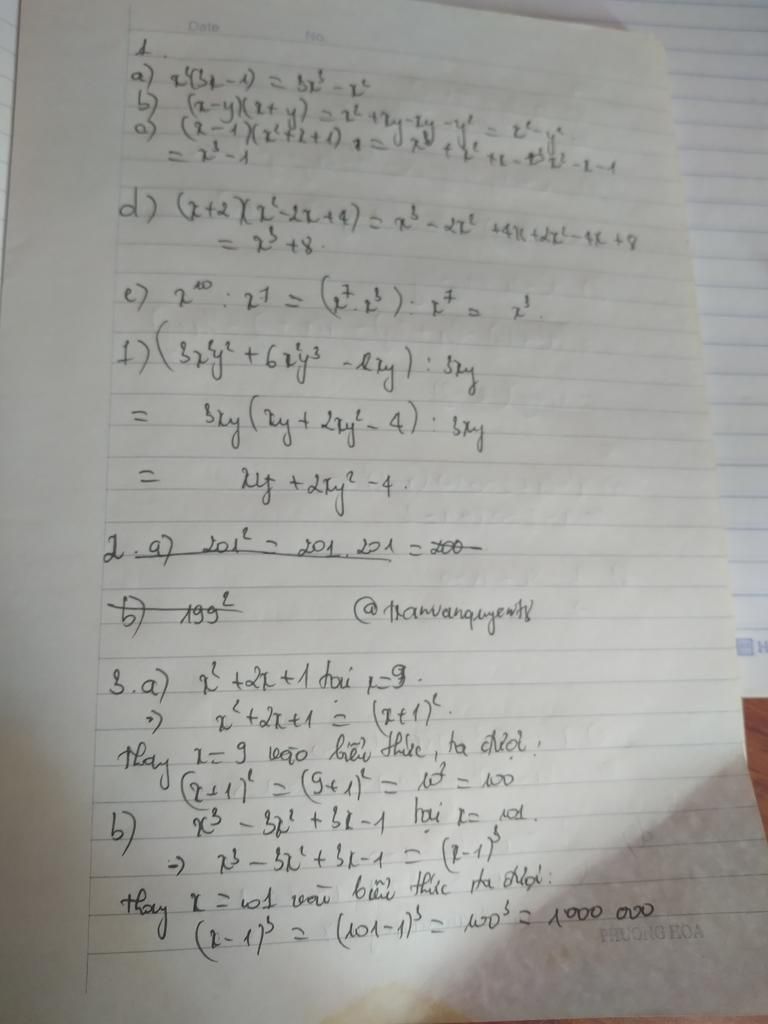 Date
No.
1.
a) x²(3x-1) = 3x³ - x²
b) (x-y)(x+y) = x² + xy - xy - y² = x² - y²
c) (x-1)(x²+x+1) = x³ + x² + x - x² - x - 1
= x³ - 1
d) (x+2)(x²-2x+4) = x³ - 2x² + 4x + 2x² - 4x + 8
= x³ + 8.
e) x¹⁰ : x⁷ = (x⁷.x³) : x⁷ = x³.
f) (3x²y² + 6x²y³ - 12xy) : 3xy
= 3xy(xy + 2xy² - 4) : 3xy
= xy + 2xy² - 4.
2. a) 201² = 201.201 = 200
b) 199² @tranvanquyen78
3. a) x² + 2x + 1 tại x=9.
=> x² + 2x + 1 = (x+1)².
thay x = 9 vào biểu thức, ta được:
(x+1)² = (9+1)² = 10² = 100
b) x³ - 3x² + 3x - 1 tại x = 101.
=> x³ - 3x² + 3x - 1 = (x-1)³
thay x = 101 vào biểu thức ta được:
(x-1)³ = (101-1)³ = 100³ = 1000 000
PHUONG HOA